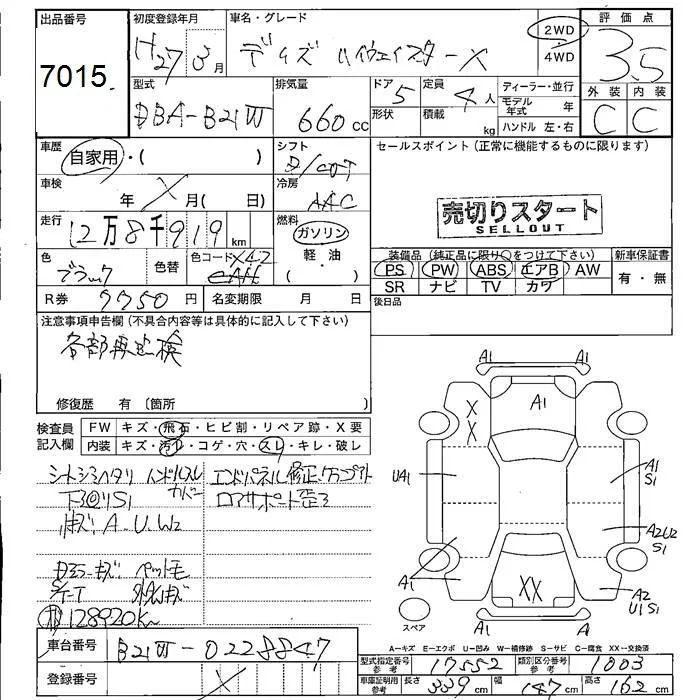 出品番号 初度登録年月 車名・グレード 評価点
7015 H27 3月 デイズ ハイウェイスターX 2WD・4WD 3.5
外装 内装
C C
型式 排気量 ドア形状 定員 積載 ディーラー・並行
DBA-B21W 660cc 5 4人 kg モデル年式 年
ハンドル 左・右
車歴 シフト セールスポイント(正常に機能するものに限ります)
自家用・( ) D/COT
車検 冷房
年 X 月( 日) AAC
売切りスタート
SELLOUT
走行 燃料
12万8千919km ガソリン
軽・油
( )
色 色替 色コード
ブラック X42
装備品(純正品に限り○をつけて下さい) 新車保証書
PS PW ABS エアB AW 有・無
SR ナビ TV カワ
R券 9950円 名変期限 月 日 後日品
注意事項申告欄(不具合内容等は具体的に記入して下さい)
各部再点検
修復歴 有 〔箇所 〕
検査員 FW キズ・飛石・ヒビ割・リペア跡・X要
記入欄 内装 キズ・汚れ・コゲ・穴・スレ・キレ・破レ
シートシミヘタリ ハンドルスレ エンドパネル修正
カバー
下回りS1 ロアサポート歪み
キズ A.U.W2
ペット毛
128920K
A1 A1
A1
X
X
UA1
A1
S1
A2U2
S1
A1
XX
A2
U1S1
スペア
A A
A-キズ E-エクボ U-凹み W-補修跡 S-サビ C-腐食 XX-交換済
車台番号 B21W-0228847
型式指定番号 参考 17552 類別区分番号 参考 1003
登録番号 X
車庫証明用 参考 長さ 339cm 幅 147cm 高さ 162cm